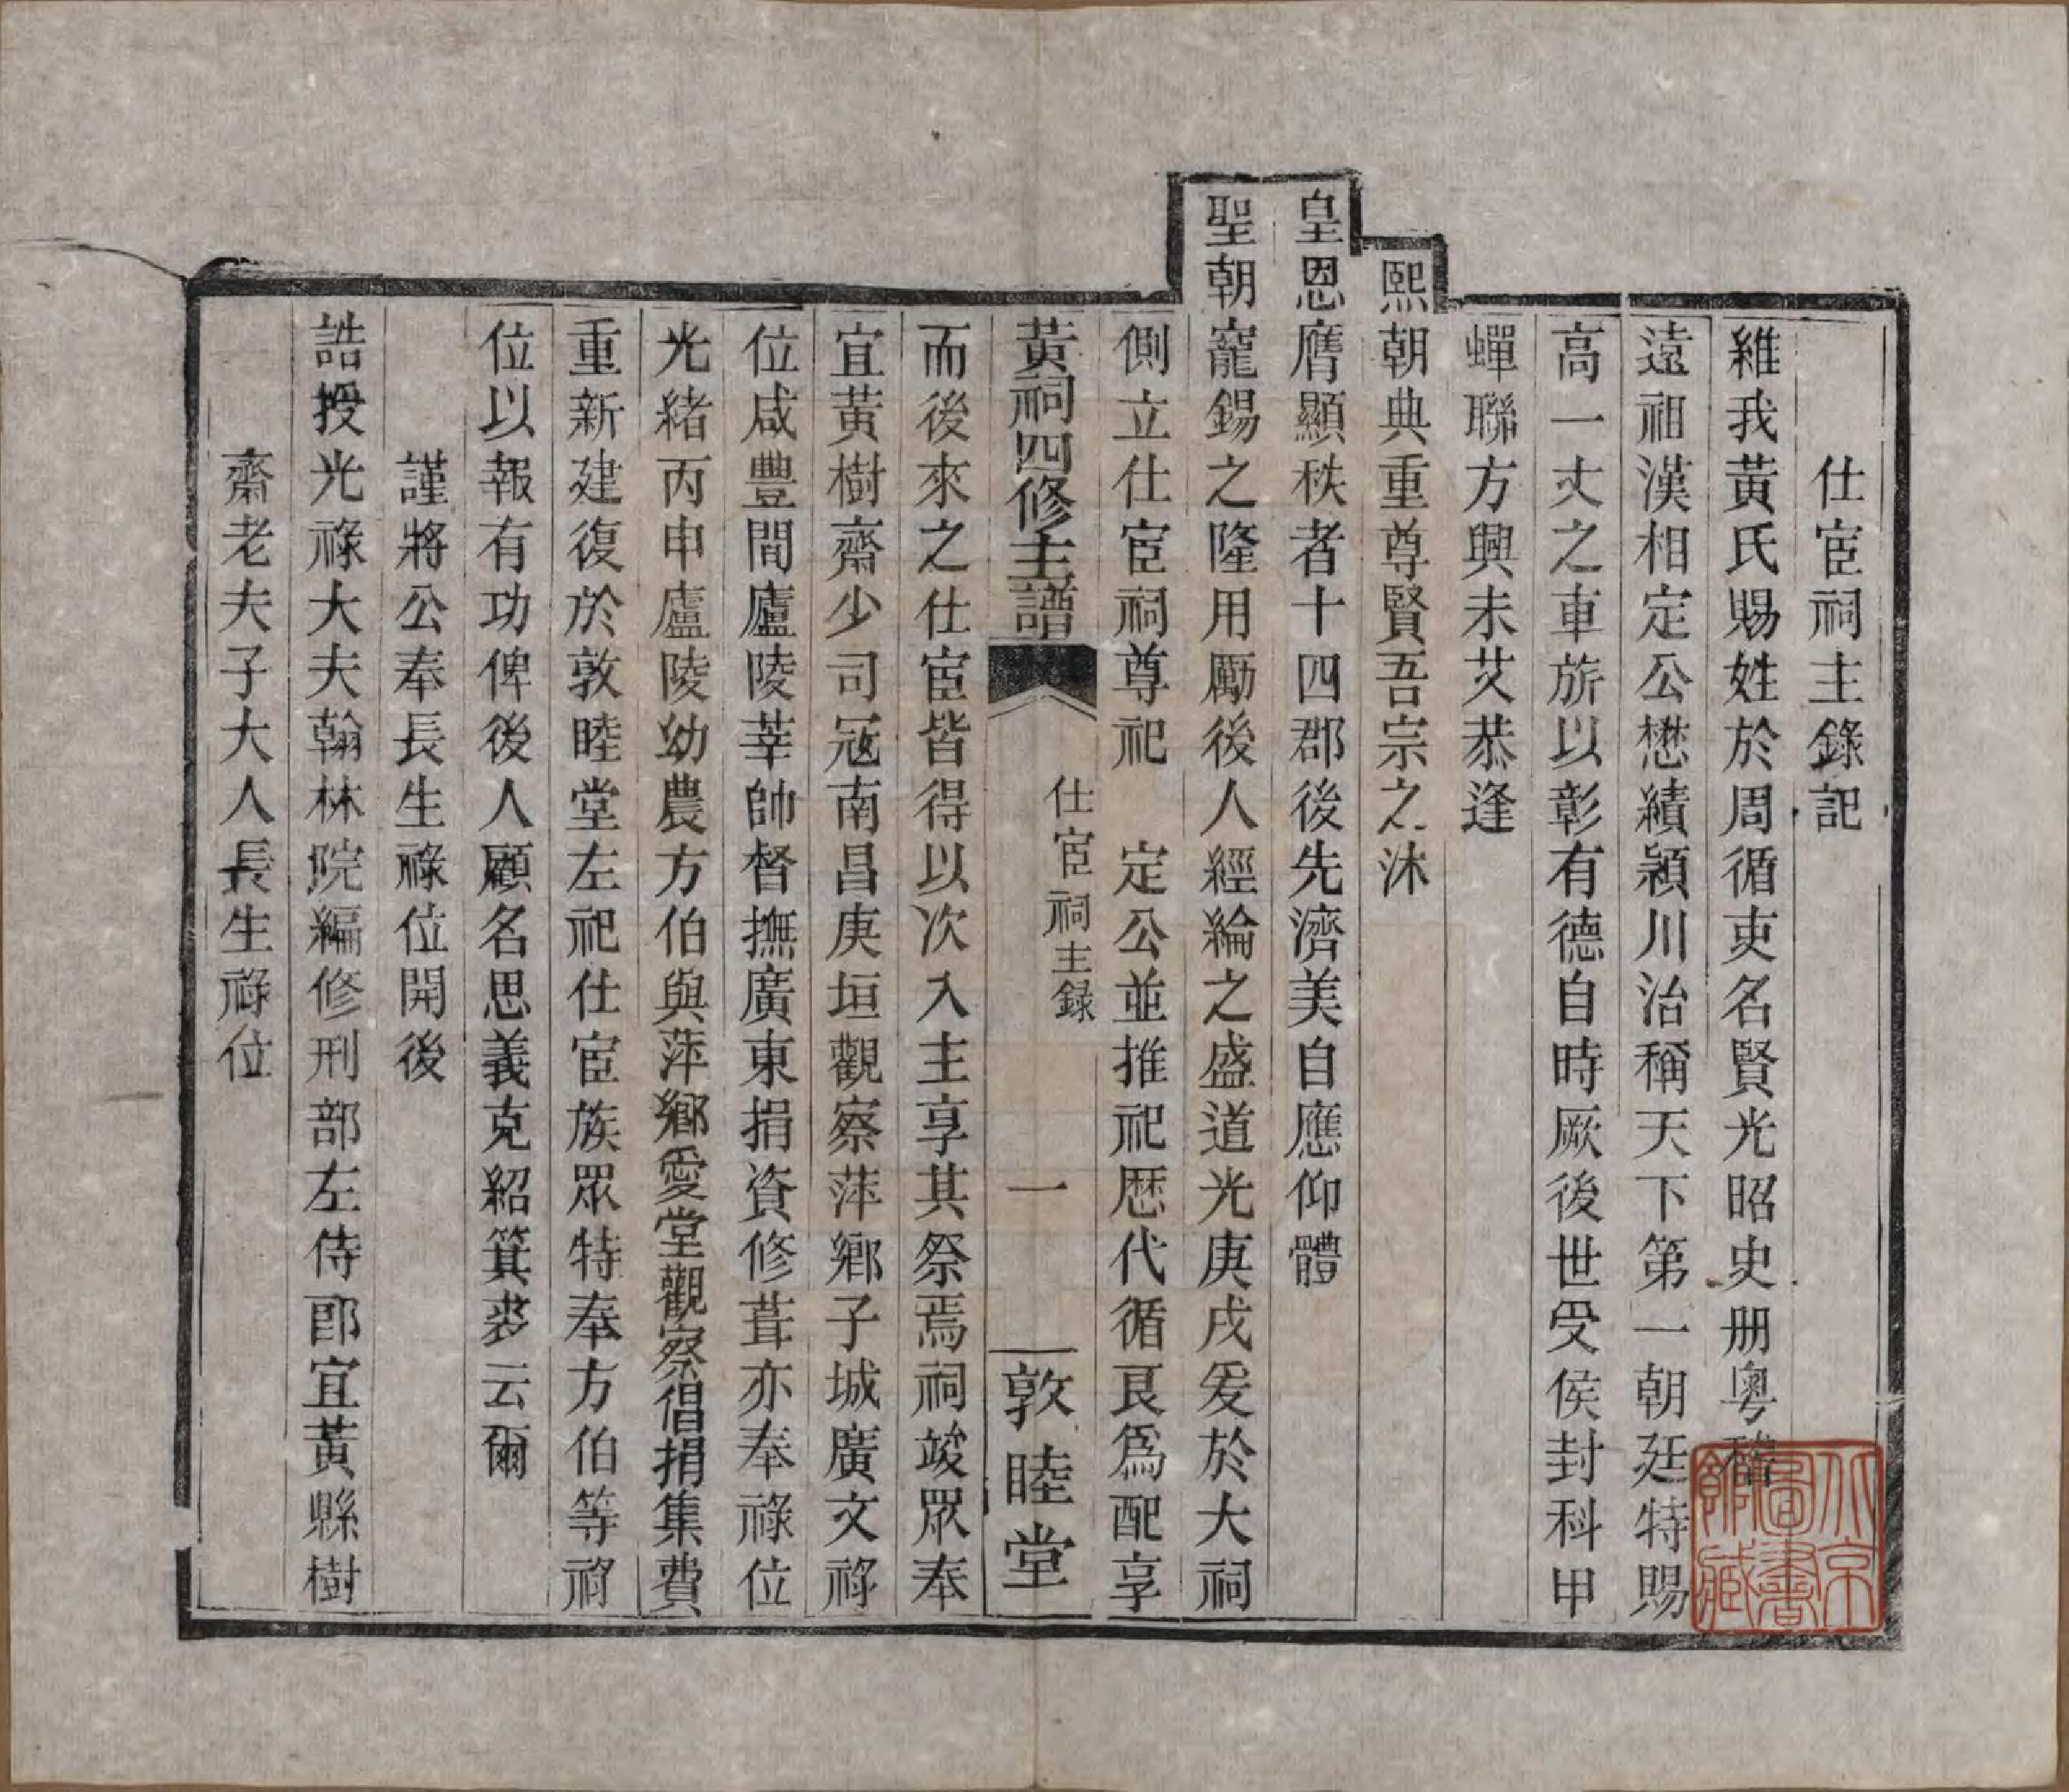 仕宦祠主錄記
維我黃氏賜姓於周循吏名賢光昭史册粤稽
遠祖漢相定公懋績潁川治稱天下第一朝廷特賜
高一丈之車旂以彰有德自時厥後世受侯封科甲
蟬聯方興未艾恭逢
熙朝典重尊賢吾宗之沐
皇恩膺顯秩者十四郡後先濟美自應仰體
聖朝寵錫之隆用勵後人經綸之盛道光庚戌爰於大祠
側立仕宦祠尊祀　定公並推祀歷代循良爲配享
黃祠四修主譜　仕宦祠主録　一　敦睦堂
而後來之仕宦皆得以次入主享其祭焉祠竣眾奉
宜黃樹齋少司冦南昌庚垣觀察萍鄉子城廣文祿
位咸豐間廬陵莘帥督撫廣東捐資修葺亦奉祿位
光緒丙申廬陵幼農方伯與萍鄉愛堂觀察倡捐集費
重新建復於敦睦堂左祀仕宦族眾特奉方伯等祿
位以報有功俾後人顧名思義克紹箕裘云爾
謹將公奉長生祿位開後
誥授光祿大夫翰林院編修刑部左侍郎宜黃縣樹
齋老夫子大人長生祿位
北京圖書館藏